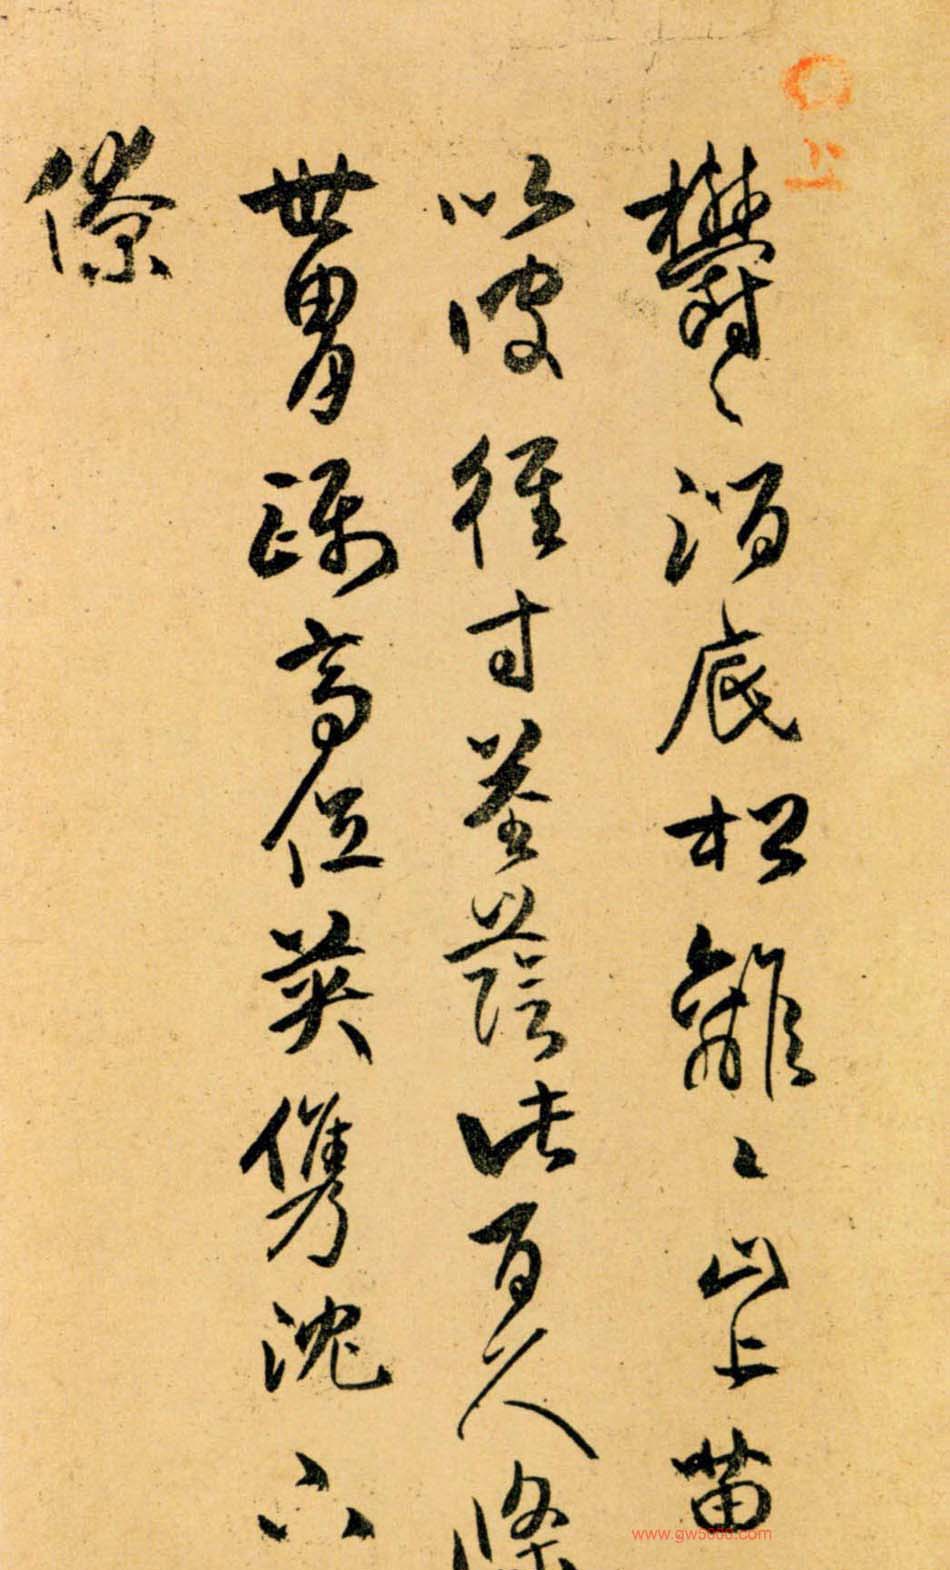 鬱〻澗底松離〻山上苗
以彼徑寸莖蔭此百尺條
世胄躡高位英雋沈下
僚